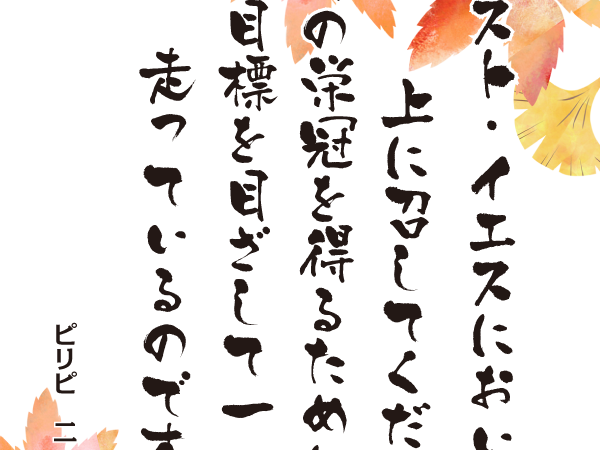 スト・イエスにおい
上に召してくだ
の栄冠を得るため
目標を目ざして一
走っているのです
ピリピ 二